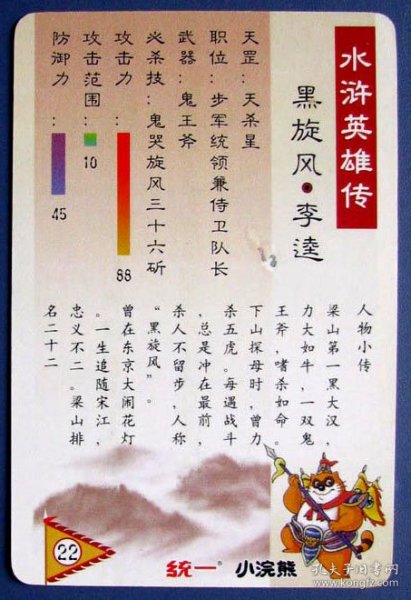 水浒英雄传
黑旋风·李逵
天罡：天杀星
职位：步军统领兼侍卫队长
武器：鬼王斧
必杀技：鬼哭旋风三十六斫
攻击力：
88
攻击范围：
10
防御力：
45
人物小传
梁山第一黑大汉，
力大如牛，一双鬼
王斧，嗜杀如命。
下山探母时，曾力
杀五虎。每遇战斗
，总是冲在最前，
杀人不留步，人称
“黑旋风”。
曾在东京大闹花灯
。一生追随宋江，
忠义不二。梁山排
名二十二
22
统一®
小浣熊
孔夫子旧书网
www.kongfz.com